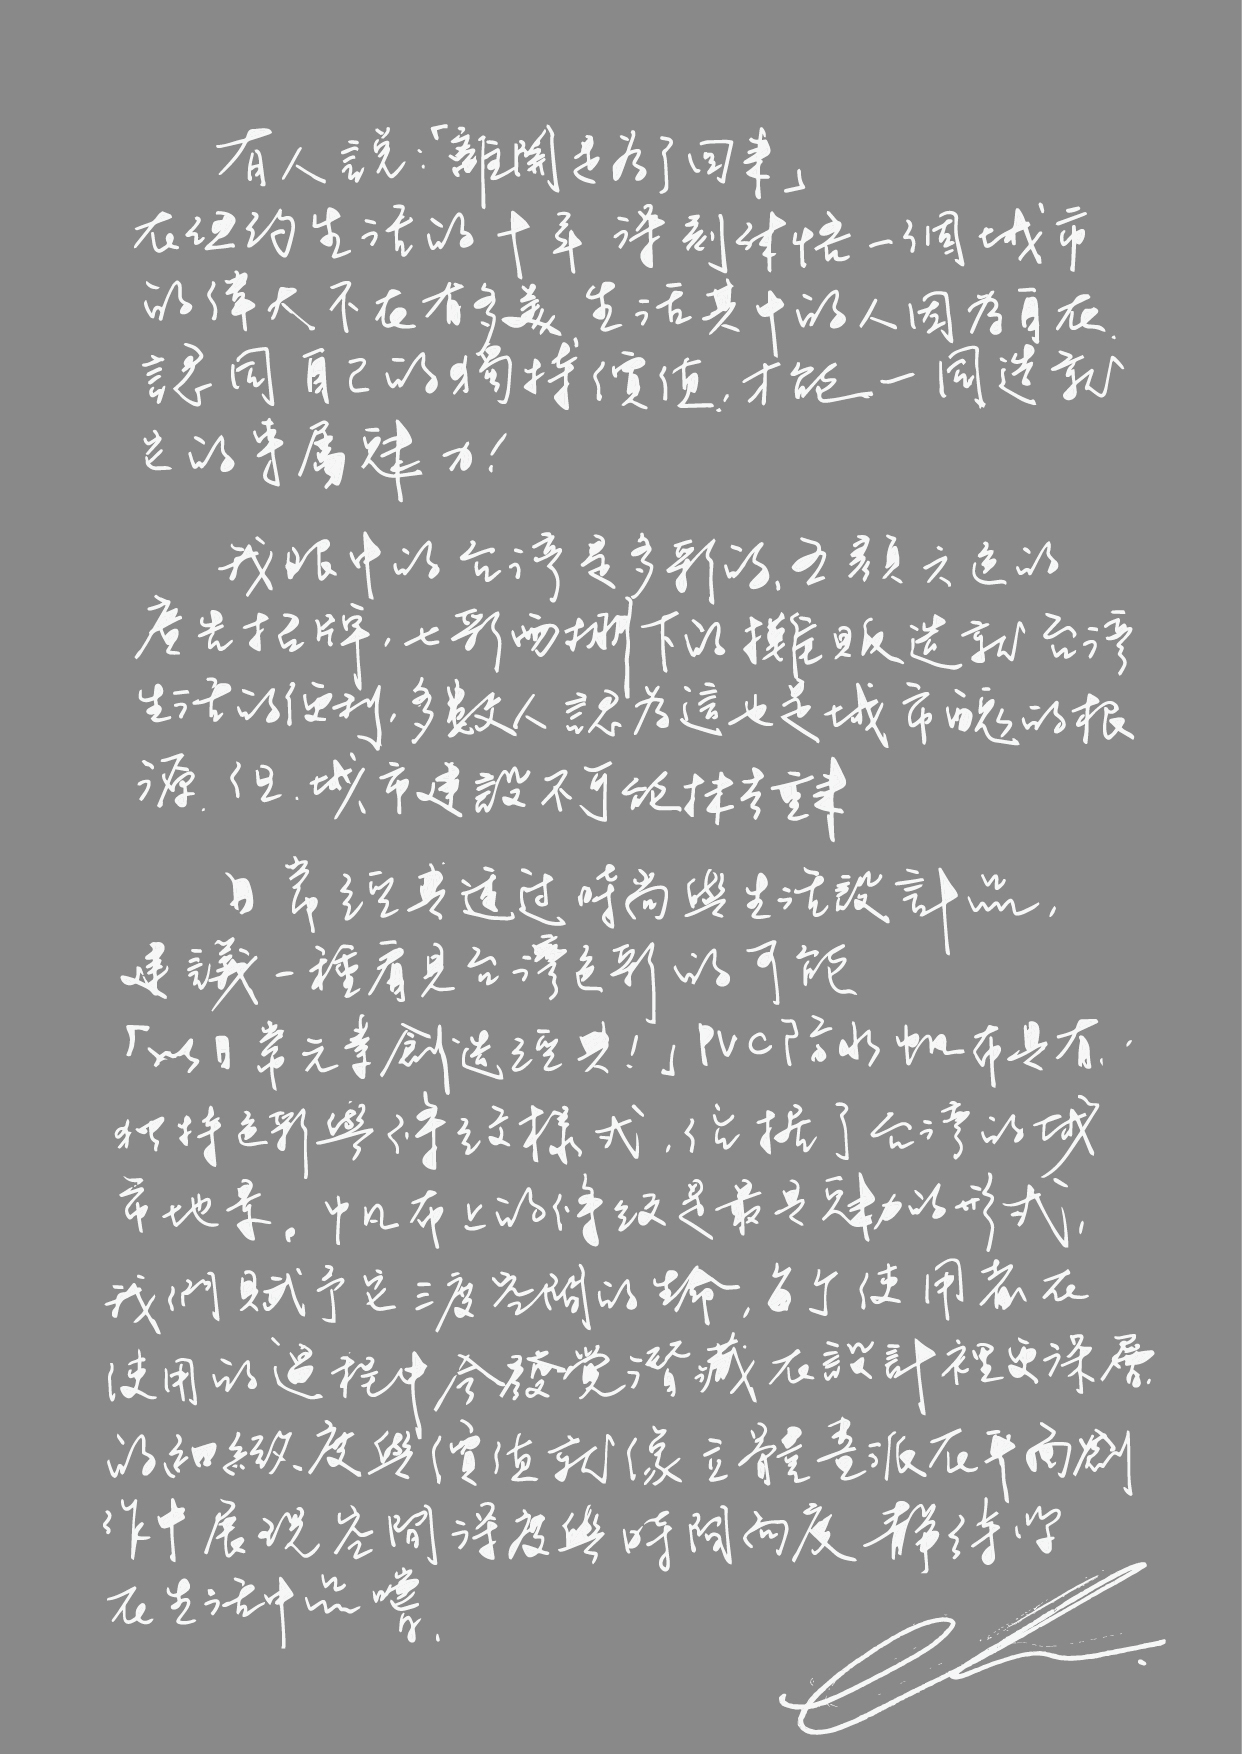 有人說:「離開是為了回來」
在紐約生活的十年 深刻体悟一個城市
的偉大不在有多美 生活其中的人因為自在.
認同自己的獨特價值, 才能一同造就
它的專屬魅力!
我眼中的台湾是多彩的、五顏六色的
廣告招牌, 七彩雨棚下的攤販造就台湾
生活的便利, 多數人認為這也是城市醜的根
源. 但. 城市建設不可能抹去重来
日常經典透过時尚與生活設計品,
建議一種看見台灣色彩的可能
「以日常元素創造經典!」PVC防水帆布具有..
独特色彩與條紋樣式, 佔据了台湾的城
市地景。帆布上的條紋是最具魅力的形式,
我們賦予它三度空間的生命, 每个使用者在
使用的過程中會發覺潛藏在設計裡更深層.
的細緻度與價值就像立體畫派在平面創
作中展現空間深度與時間向度 靜待您
在生活中品嚐.